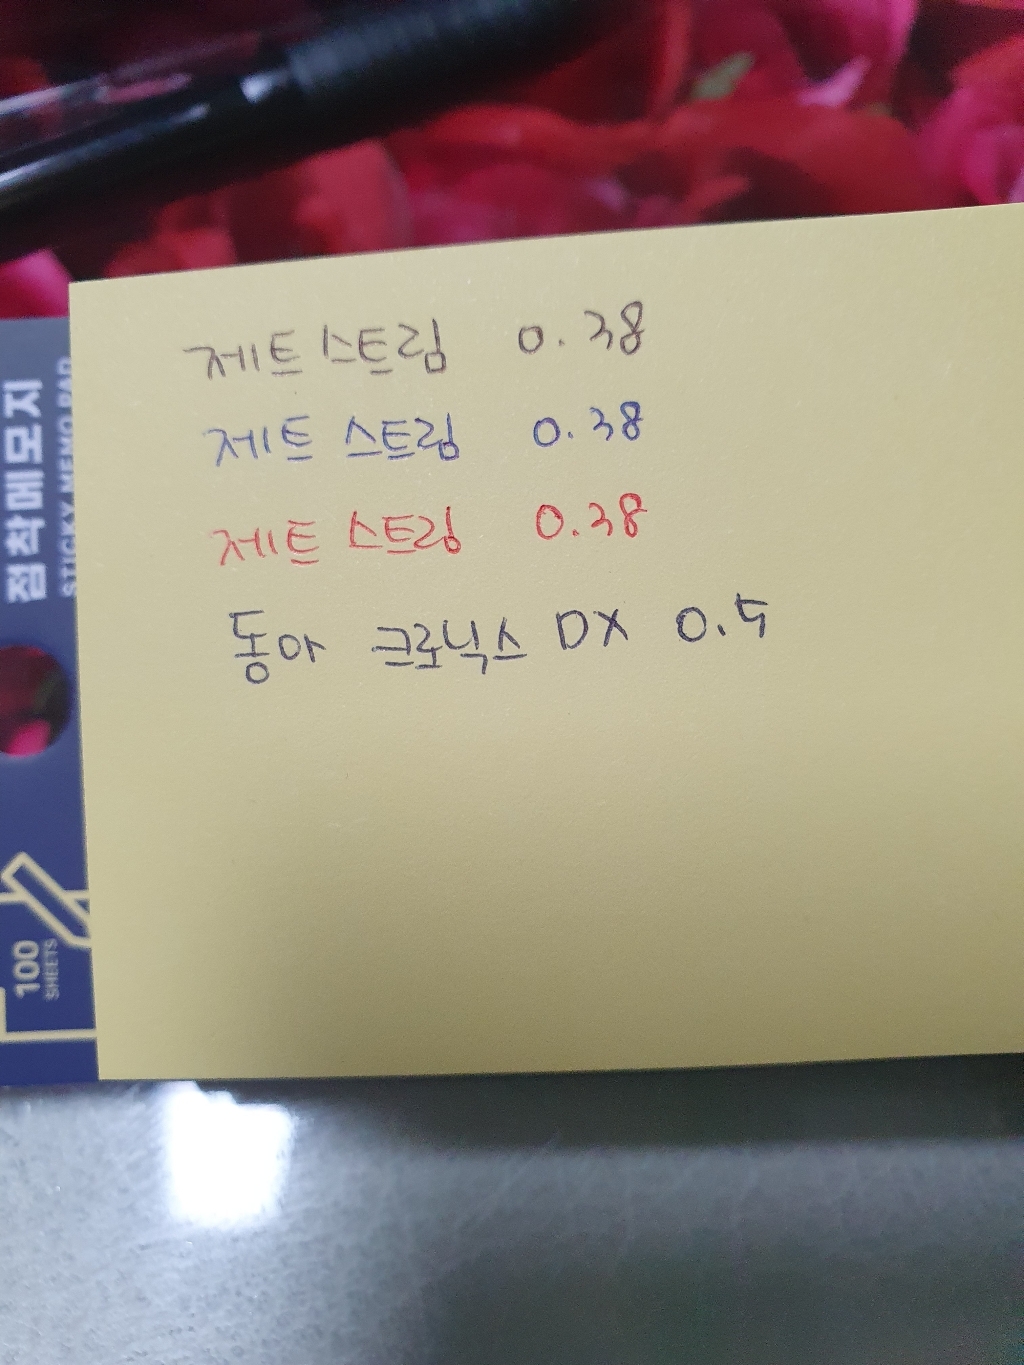 제트스트림 0.38
제트 스트림 0.38
제트 스트림 0.38
동아 크로닉스 DX 0.5
점착메모지
STICKY MEMO PAD
100
SHEETS